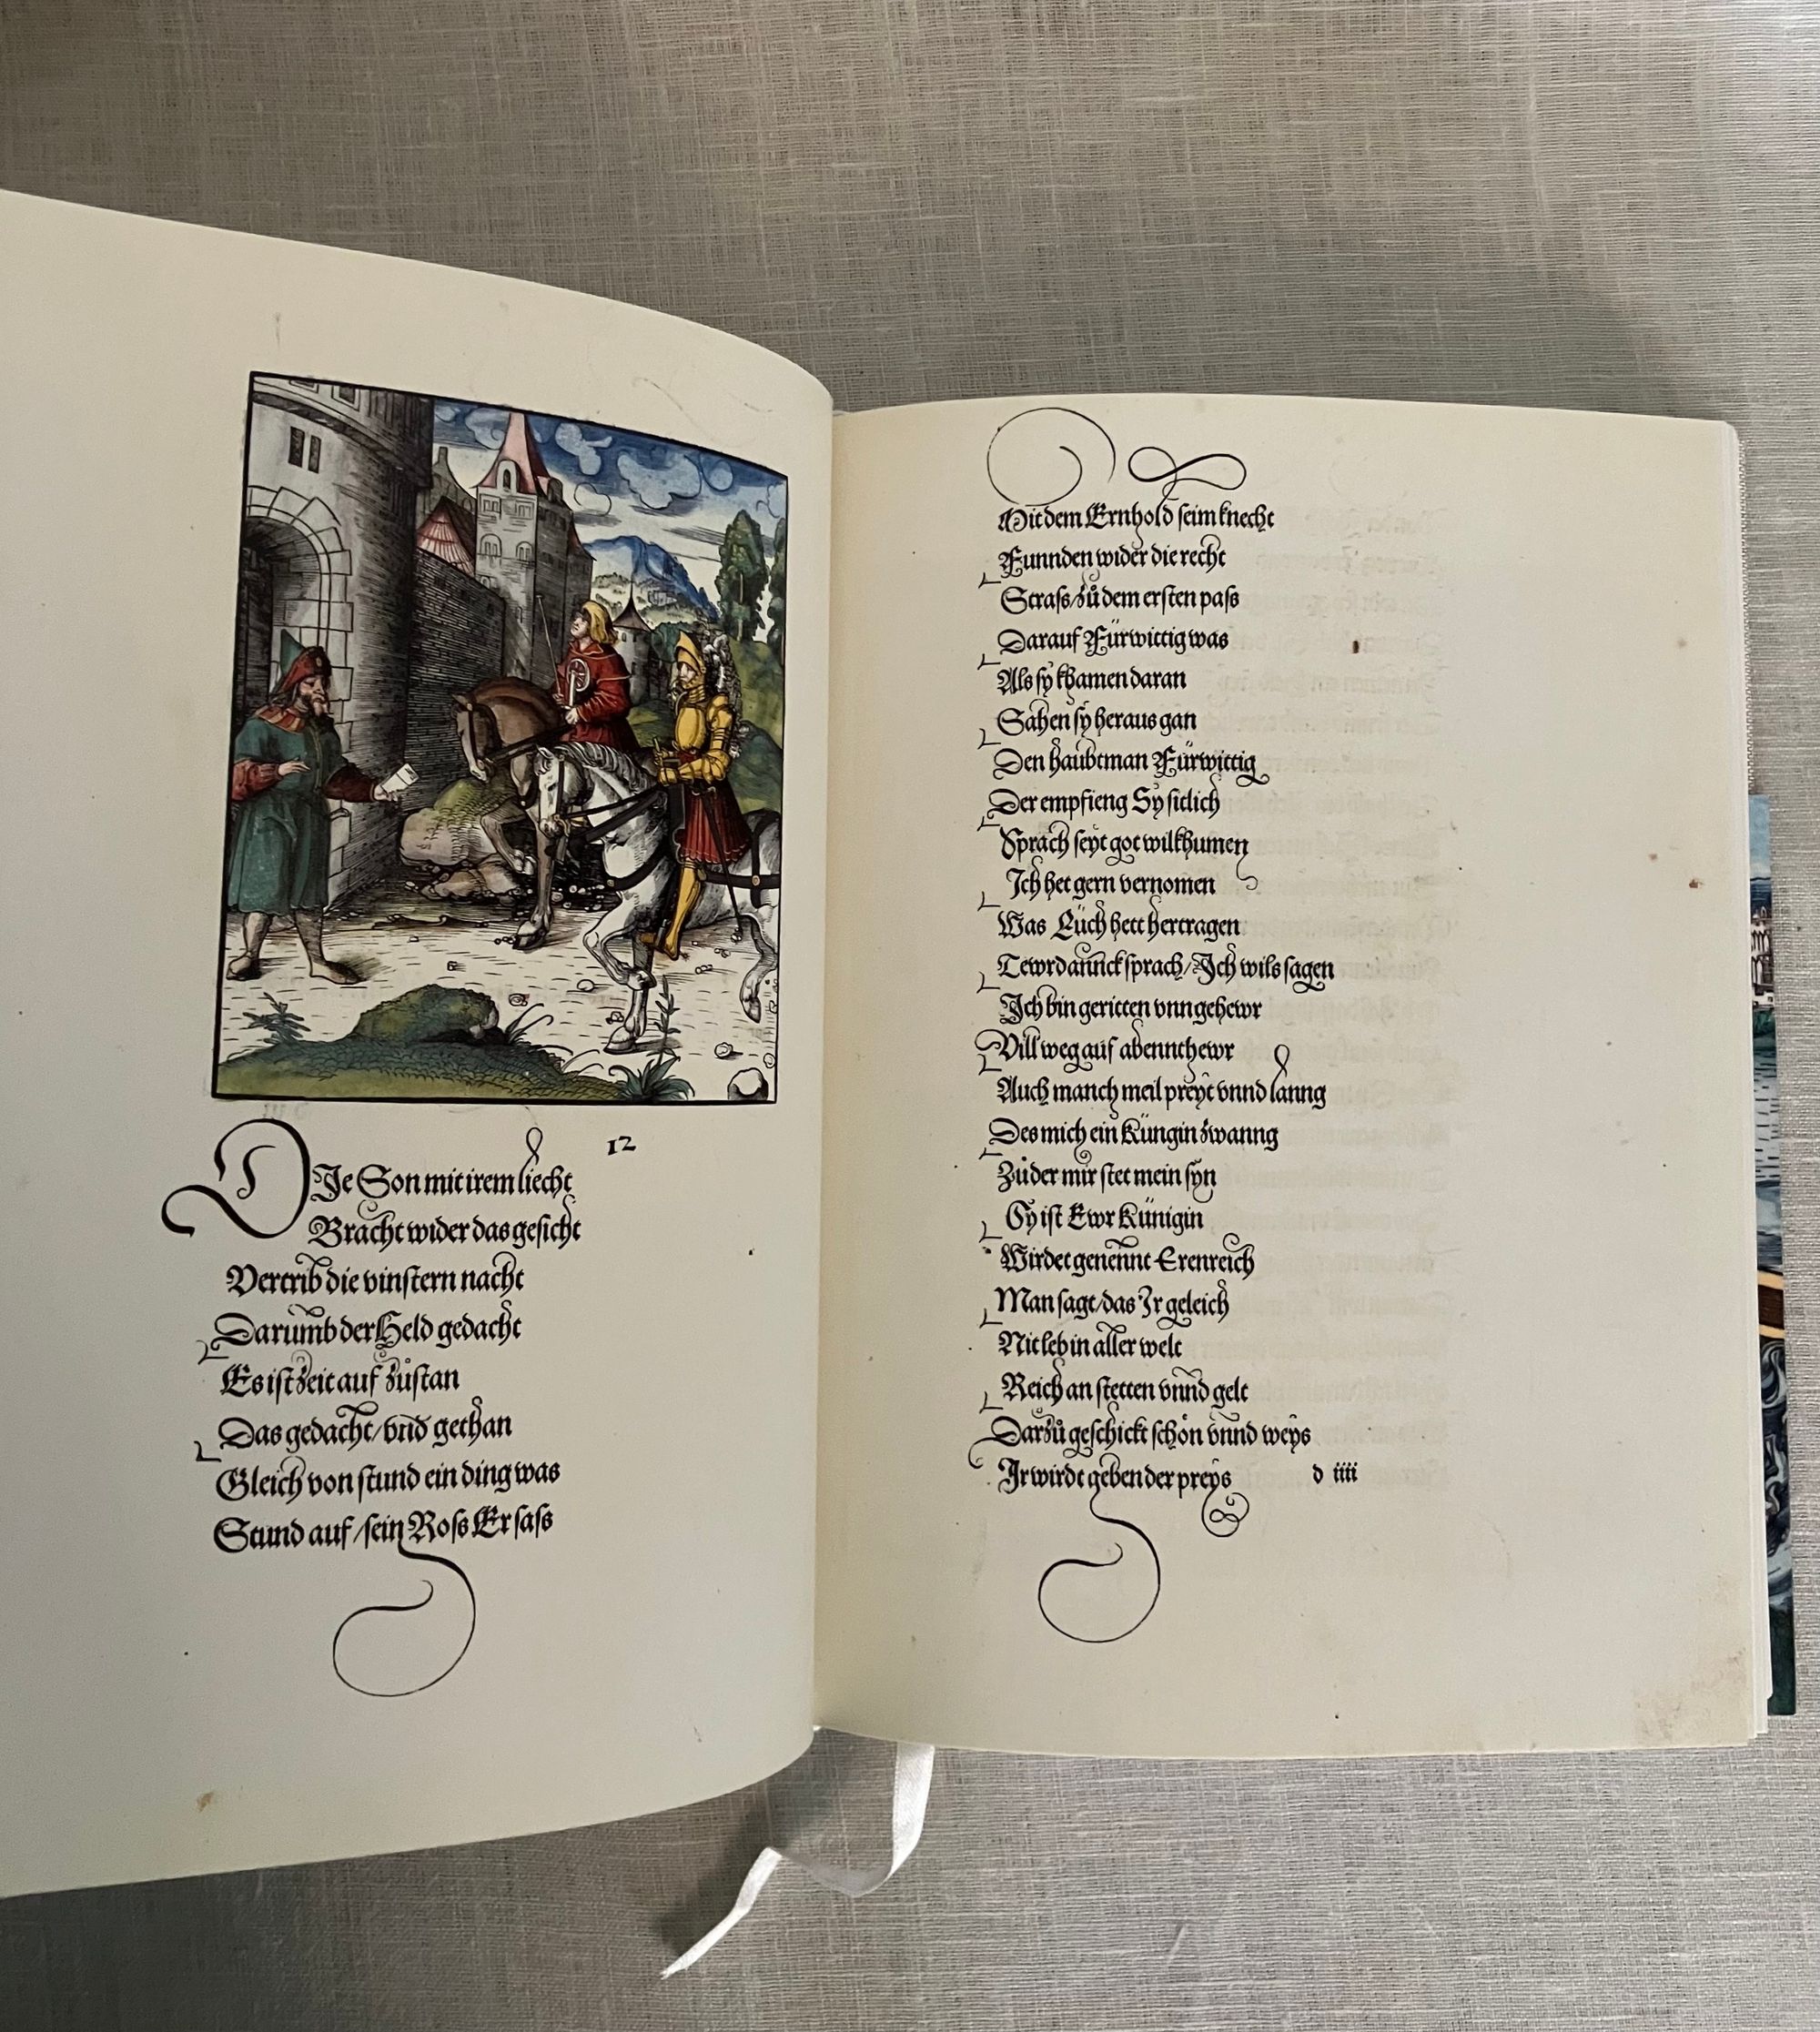 12
DJe Son mit irem liecht
Bracht wider das gesicht
Vertrib die vinstern nacht
Darumb der Held gedacht
Es ist zeit auf zůstan
Das gedacht/vnd gethan
Gleich von stund ein ding was
Stund auf/sein Ross Er sass
Mit dem Ernhold seim knecht
Funnden wider die recht
Strass/zů dem ersten pass
Darauf Fürwittig was
Als sy khamen daran
Sahen sy heraus gan
Den haubtman Fürwittig
Der empfieng Sy sitlich
Sprach seyt got wilkhumen
Ich het gern vernomen
Was Eüch hett hertragen
Tewrdannck sprach/Ich wils sagen
Ich bin geritten vnngehewr
Vill weg auf abennthewr
Auch manch meil preyt vnnd lanng
Des mich ein Küngin zwanng
Zů der mir stet mein syn
Sy ist Ewr Künigin
Wirdet genennt Erenreich
Man sagt/das Ir geleich
Nit leb in aller welt
Reich an stetten vnnd gelt
Darzů geschickt schön vnnd weys
Ir wirdt geben der preys
d iiii